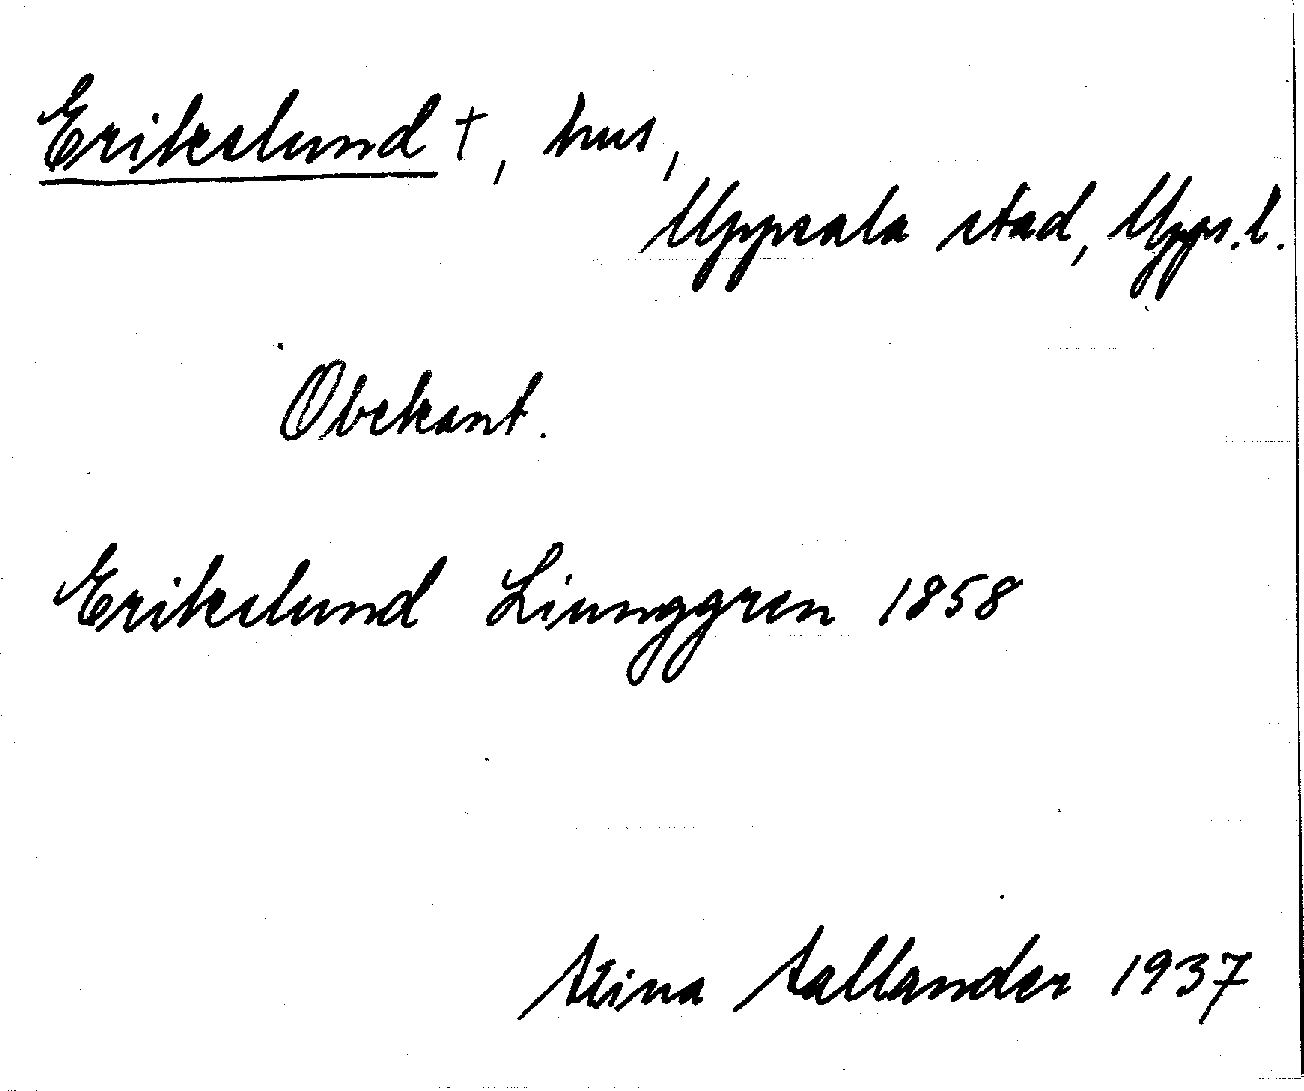 Erikslund †, hus,
Uppsala stad, Upps. l.
Obekant.
Erikslund Liunggren 1858
Stina Sallander 1937